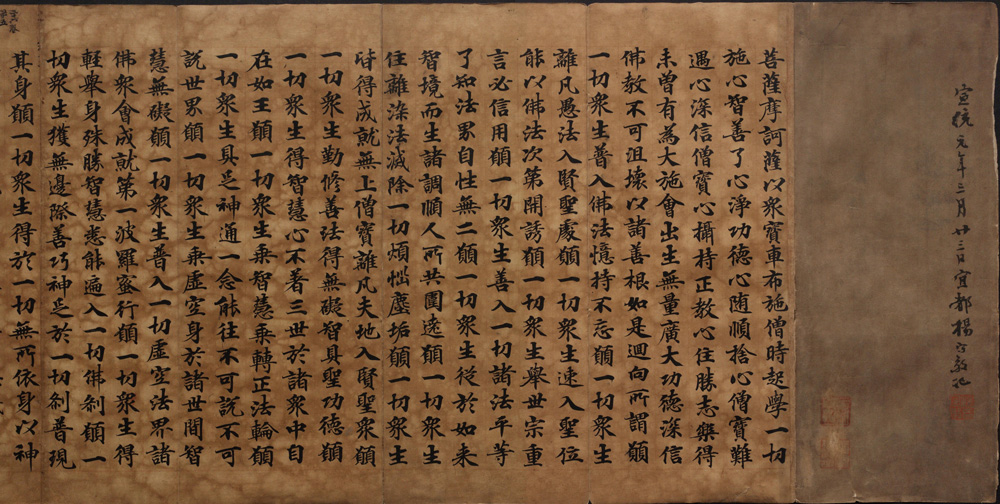 宣統元年三月廿三日宜都楊守敬記
菩薩摩訶薩以衆寶車布施僧時起學一切
施心智善了心淨功德心随順捨心僧寶難
遇心深信僧寶心攝持正教心住勝志樂得
未曾有為大施會出生無量廣大功德深信
佛教不可沮壞以諸善根如是迴向所謂願
一切衆生普入佛法憶持不忘願一切衆生
離凡愚法入賢聖處願一切衆生速入聖位
能以佛法次第開誘願一切衆生舉世宗重
言必信用願一切衆生善入一切諸法平等
了知法界自性無二願一切衆生従於如来
智境而生諸調順人所共圍遶願一切衆生
住離染法滅除一切煩惱塵垢願一切衆生
皆得成就無上僧寶離凡夫地入賢聖衆願
一切衆生勤修善法得無礙智具聖功德願
一切衆生得智慧心不著三世於諸衆中自
在如王願一切衆生乗智慧乗轉正法輪願
一切衆生具足神通一念能往不可說不可
説世界願一切衆生乗虚空身於諸世間智
慧無礙願一切衆生普入一切虚空法界諸
佛衆會成就第一波羅蜜行願一切衆生得
輕舉身殊勝智慧悉能遍入一切佛剎願一
切衆生獲無邊際善巧神足於一切剎普現
其身願一切衆生得於一切無所依身以神